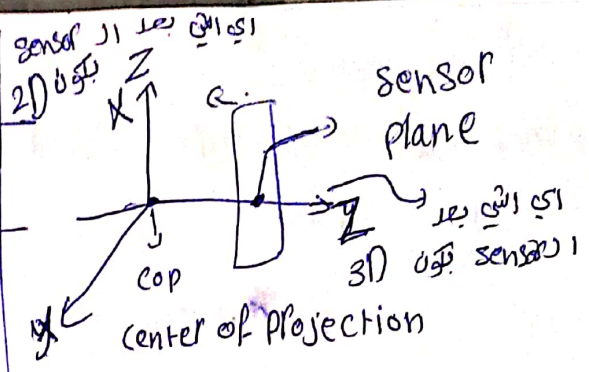 اي اشي بعد ال sensor
بكون 2D
Z
X
sensor
plane
Z
اي اشي بعد
ال sensor بكون 3D
COP
y
Center of Projection